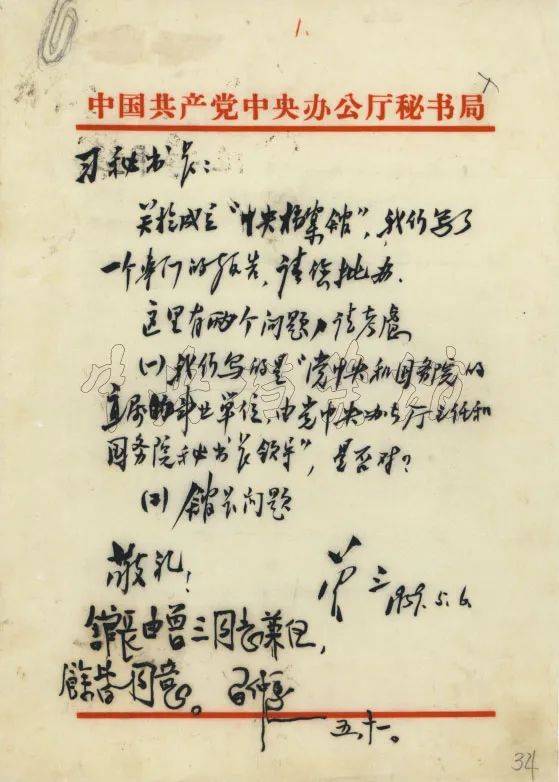 1.
中国共产党中央办公厅秘书局
习秘书长：
关于成立“中央档案馆”，我们写了
一个专门的报告，请您批办．
这里有两个问题，请考虑
(一)我们写的是“党中央和国务院的
直属的事业单位，由党中央办公厅主任和
国务院秘书长领导”，是否对？
(二)馆长问题
敬礼！
曾三 1959.5.6.
舘長由曾三同志兼任，
餘皆同意。習仲勛
五、十一。
34
中央档案馆